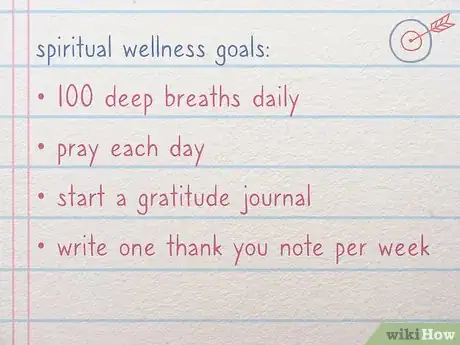 spiritual wellness goals:
• 100 deep breaths daily
• pray each day
• start a gratitude journal
• write one thank you note per week
wikiHow